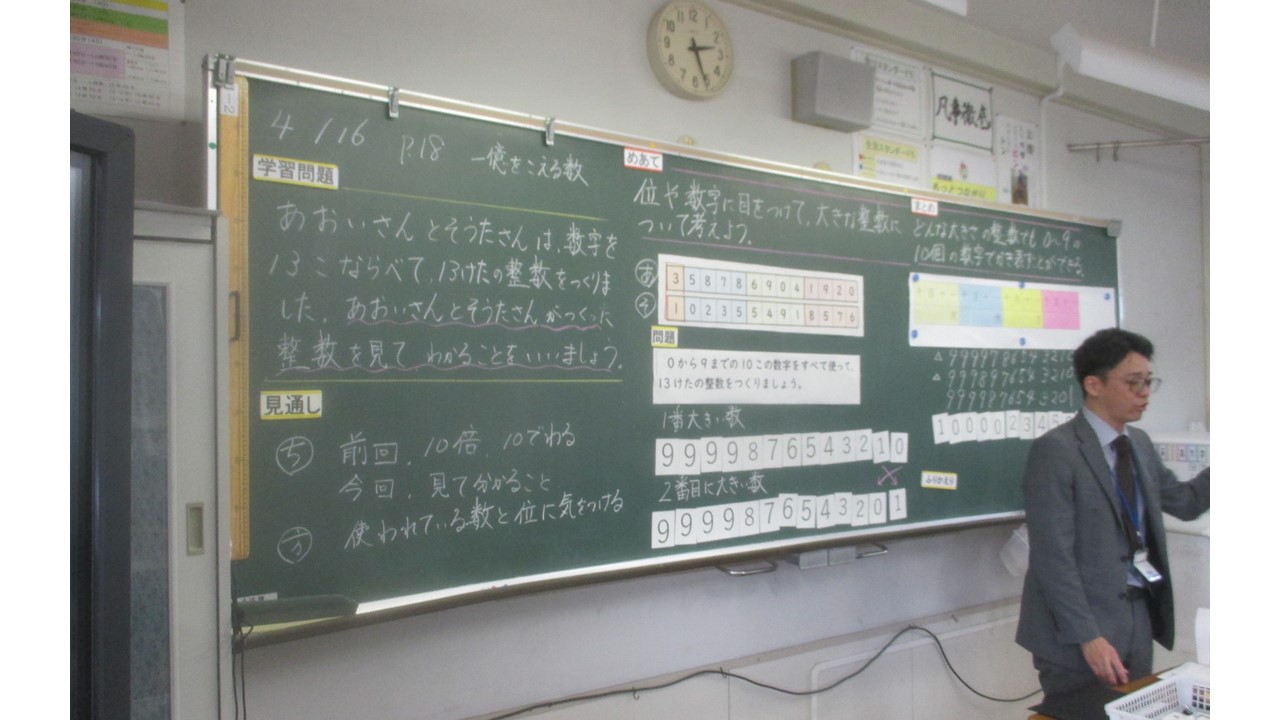 4/16 p.18 一億をこえる数
学習問題
あおいさんとそうたさんは、数字を
13こならべて、13けたの整数をつくりま
した。あおいさんとそうたさんがつくった
整数を見てわかることをいいましょう。
見通し
ち 前回、10倍、10でわる
今回、見て分かること
方 使われている数と位に気をつける
めあて
位や数字に目をつけて、大きな整数に
ついて考えよう。
あ 35877869041920
そ 10235554918576
問題
0から9までの10この数字をすべて使って、
13けたの整数をつくりましょう。
1番大きい数
9999876543210
2番目に大きい数
9999876543201
まとめ
どんな大きさの整数でも0〜9の
10個の数字でかき表すことができる。
ふりかえり
凡事徹底